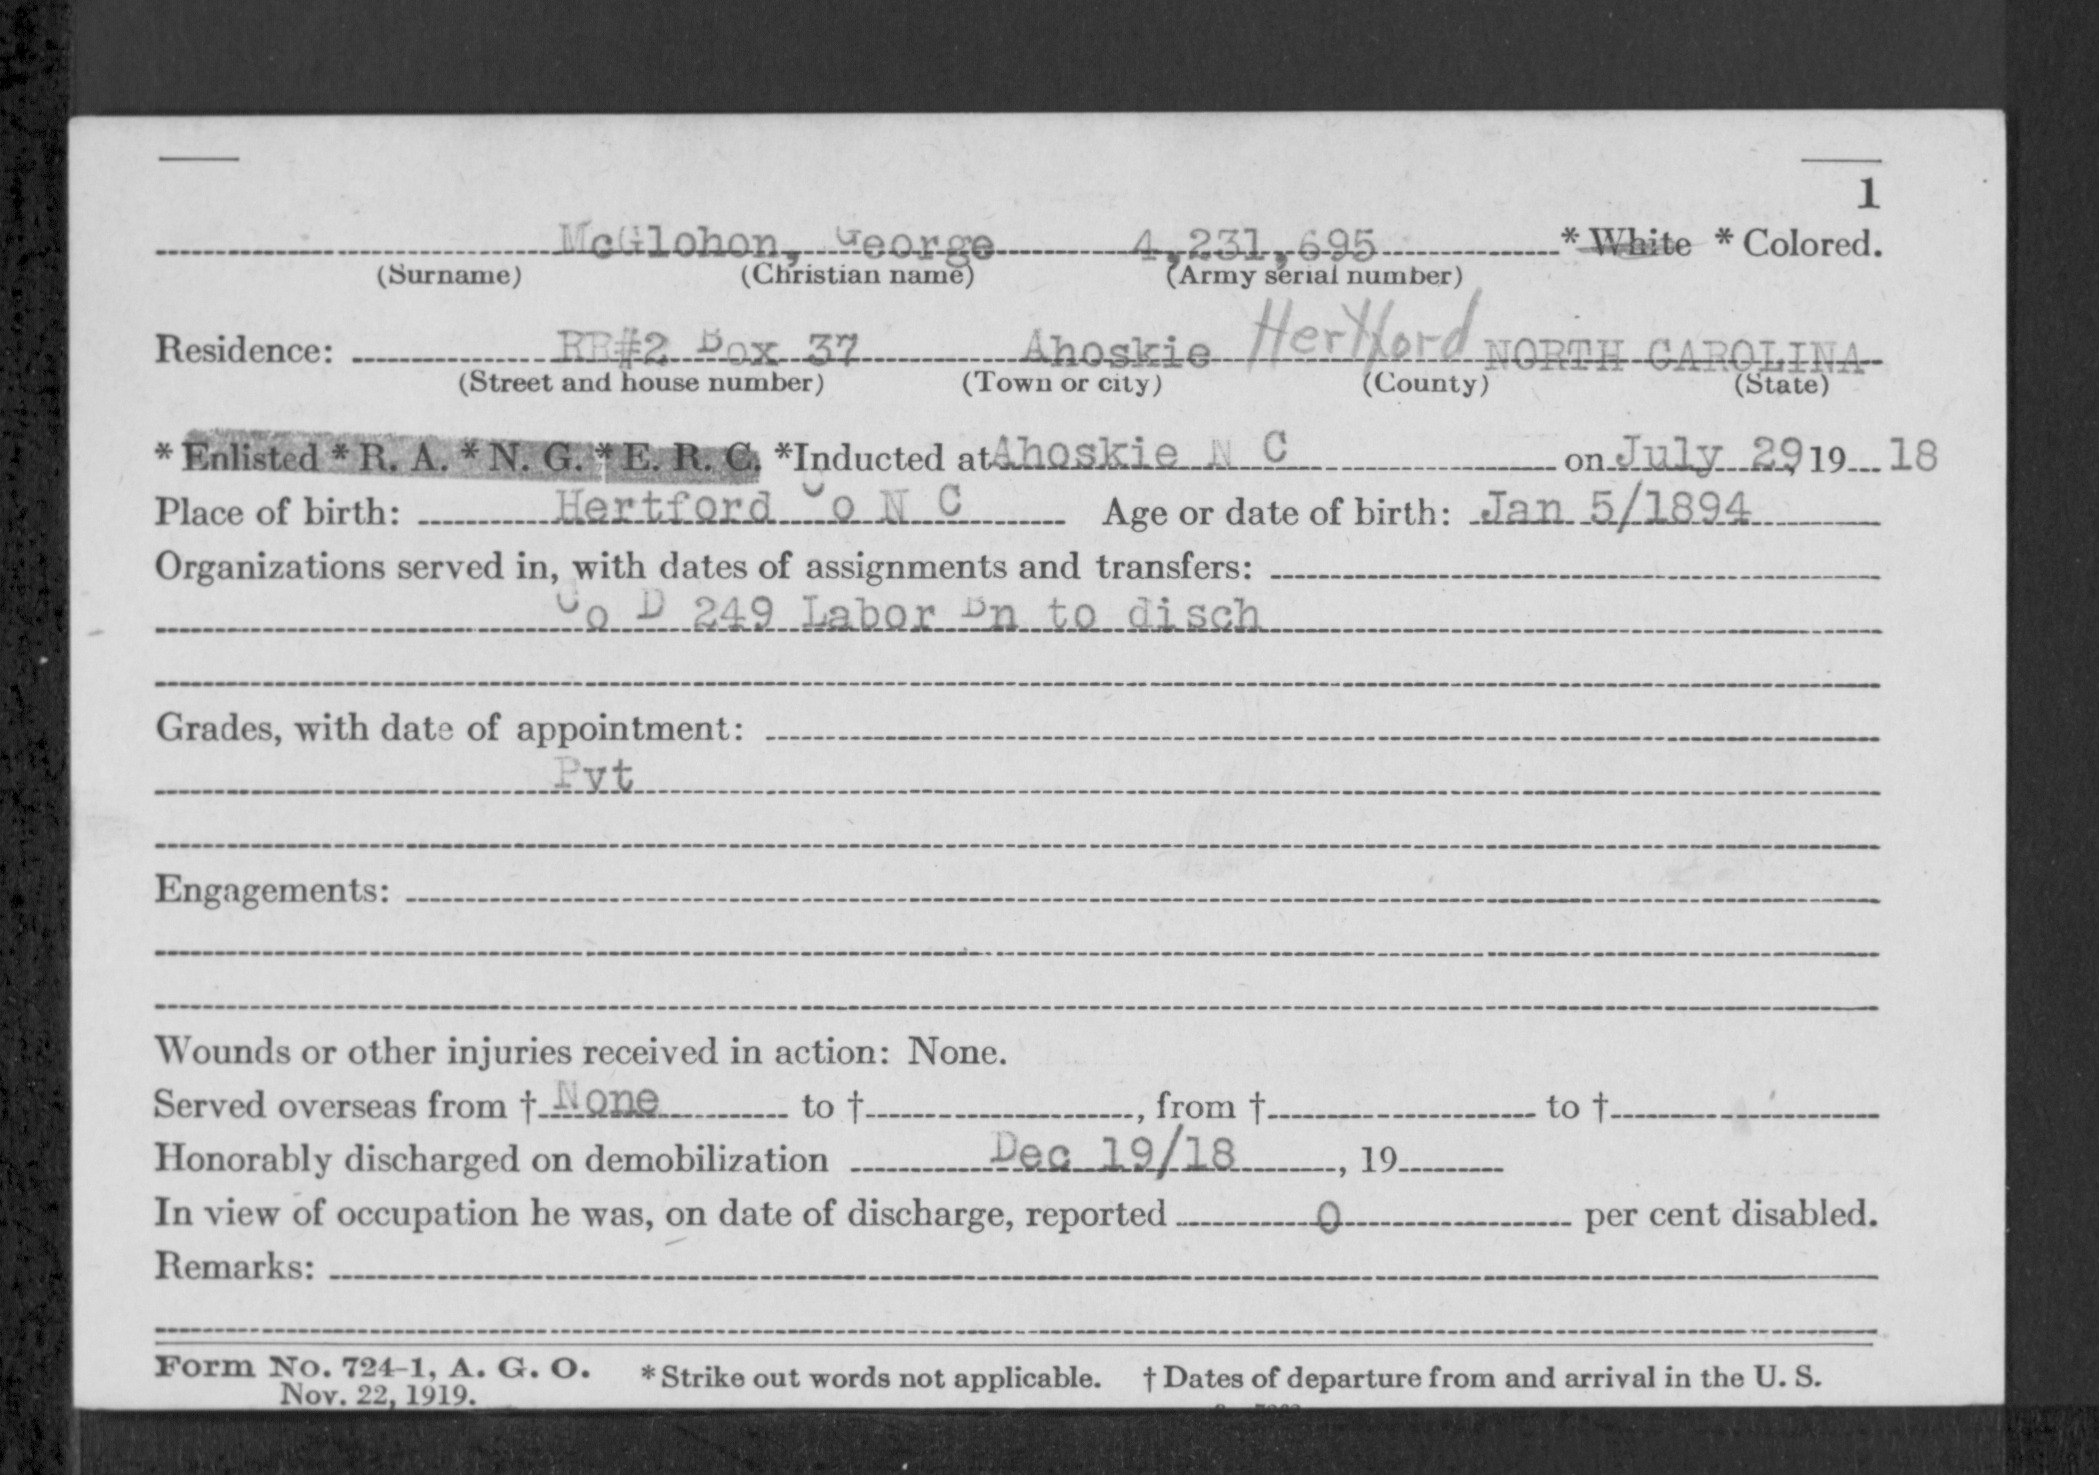 1
McGlohon, George 4,231,695 * White * Colored.
(Surname) (Christian name) (Army serial number)
Residence: RR#2 Box 37 Ahoskie Hertford NORTH CAROLINA
(Street and house number) (Town or city) (County) (State)
* Enlisted * R. A. * N. G. * E. R. C. *Inducted at Ahoskie N C on July 29, 19 18
Place of birth: Hertford Co N C Age or date of birth: Jan 5/1894
Organizations served in, with dates of assignments and transfers:
Co D 249 Labor Bn to disch
Grades, with date of appointment:
Pvt
Engagements:
Wounds or other injuries received in action: None.
Served overseas from † None to †, from † to †
Honorably discharged on demobilization Dec 19/18, 19
In view of occupation he was, on date of discharge, reported 0 per cent disabled.
Remarks:
Form No. 724-1, A. G. O. * Strike out words not applicable. † Dates of departure from and arrival in the U. S.
Nov. 22, 1919.